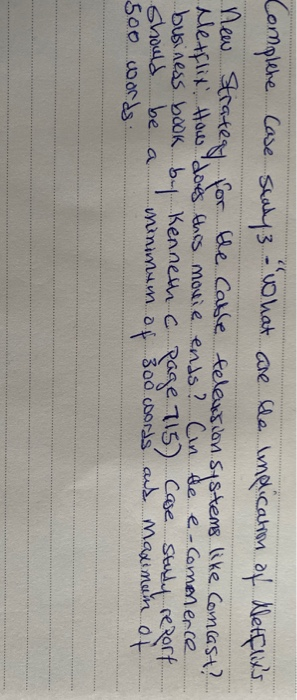 Complete Case study 3 - "What are the implication of Netflix's
New Strategy for the Cable television systems like Comcast?
Netflix: How does this movie ends? (in the e-commerce
business book by Kenneth C page 715) Case study report
should be a minimum of 300 words and maximum of
500 words.